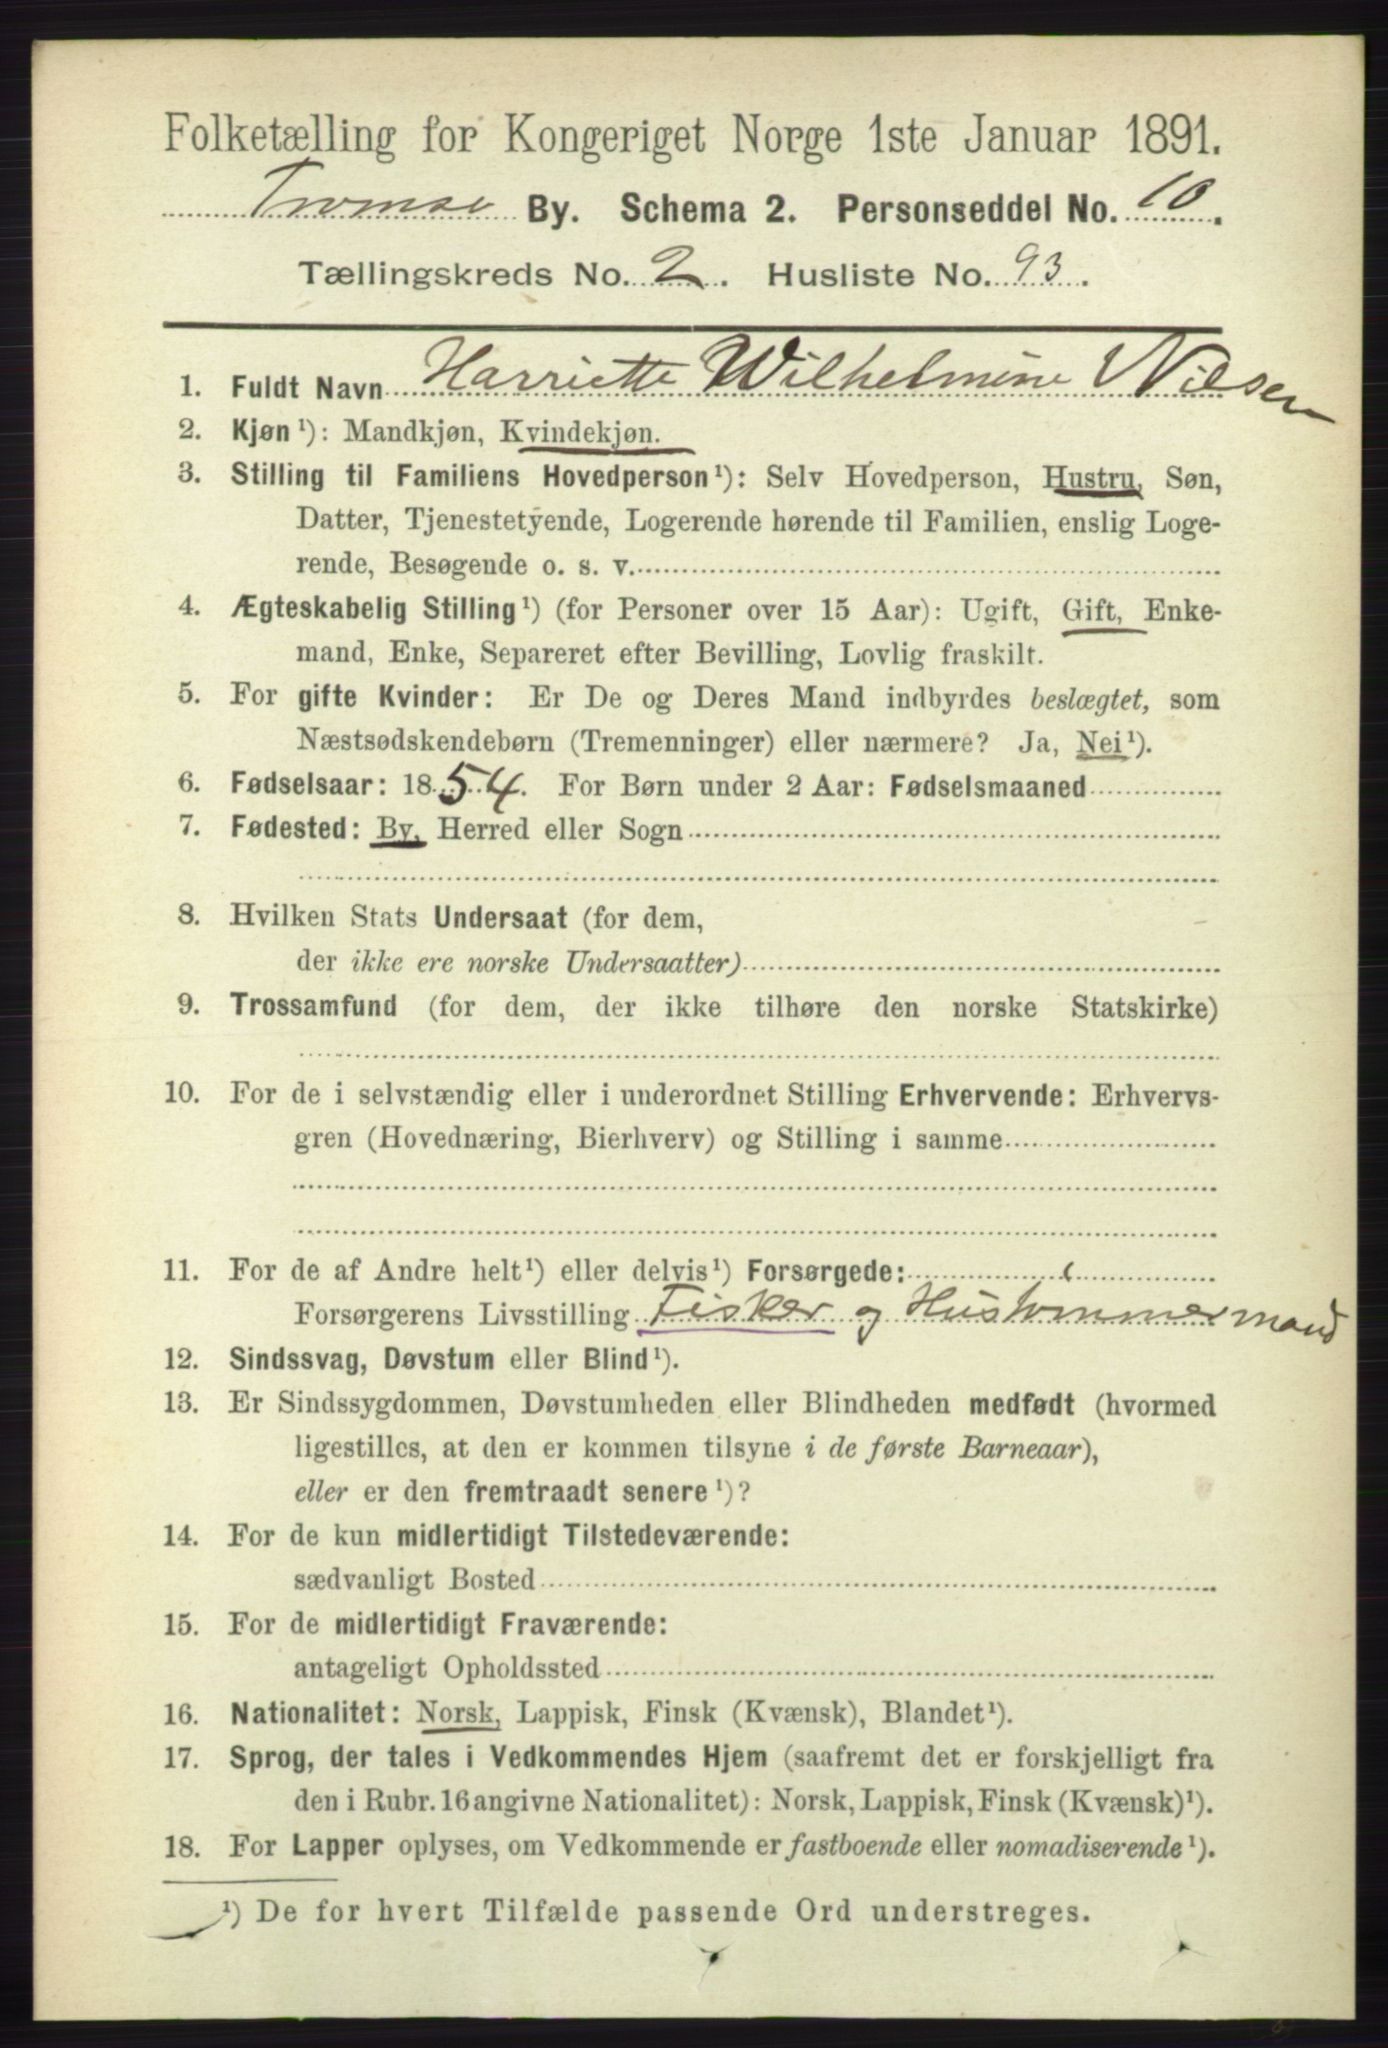 Folketælling for Kongeriget Norge 1ste Januar 1891.
Tromsø By. Schema 2. Personseddel No. 10.
Tællingskreds No. 2. Husliste No. 93.
1. Fuldt Navn Harriette Wilhelmine Nilsen
2. Kjøn¹): Mandkjøn, Kvindekjøn.
3. Stilling til Familiens Hovedperson¹): Selv Hovedperson, Hustru, Søn,
Datter, Tjenestetyende, Logerende hørende til Familien, enslig Loge-
rende, Besøgende o. s. v.
4. Ægteskabelig Stilling¹) (for Personer over 15 Aar): Ugift, Gift, Enke-
mand, Enke, Separeret efter Bevilling, Lovlig fraskilt.
5. For gifte Kvinder: Er De og Deres Mand indbyrdes beslægtet, som
Næstsødskendebørn (Tremenninger) eller nærmere? Ja, Nei¹).
6. Fødselsaar: 1854. For Børn under 2 Aar: Fødselsmaaned
7. Fødested: By, Herred eller Sogn
8. Hvilken Stats Undersaat (for dem,
der ikke ere norske Undersaatter)
9. Trossamfund (for dem, der ikke tilhøre den norske Statskirke)
10. For de i selvstændig eller i underordnet Stilling Erhvervende: Erhvervs-
gren (Hovednæring, Bierhverv) og Stilling i samme
11. For de af Andre helt¹) eller delvis¹) Forsørgede:
Forsørgerens Livsstilling Fisker og Hustømmermand
12. Sindssvag, Døvstum eller Blind¹).
13. Er Sindssygdommen, Døvstumheden eller Blindheden medfødt (hvormed
ligestilles, at den er kommen tilsyne i de første Barneaar),
eller er den fremtraadt senere¹)?
14. For de kun midlertidigt Tilstedeværende:
sædvanligt Bosted
15. For de midlertidigt Fraværende:
antageligt Opholdssted
16. Nationalitet: Norsk, Lappisk, Finsk (Kvænsk), Blandet¹).
17. Sprog, der tales i Vedkommendes Hjem (saafremt det er forskjelligt fra
den i Rubr. 16 angivne Nationalitet): Norsk, Lappisk, Finsk (Kvænsk)¹).
18. For Lapper oplyses, om Vedkommende er fastboende eller nomadiserende¹).
¹) De for hvert Tilfælde passende Ord understreges.